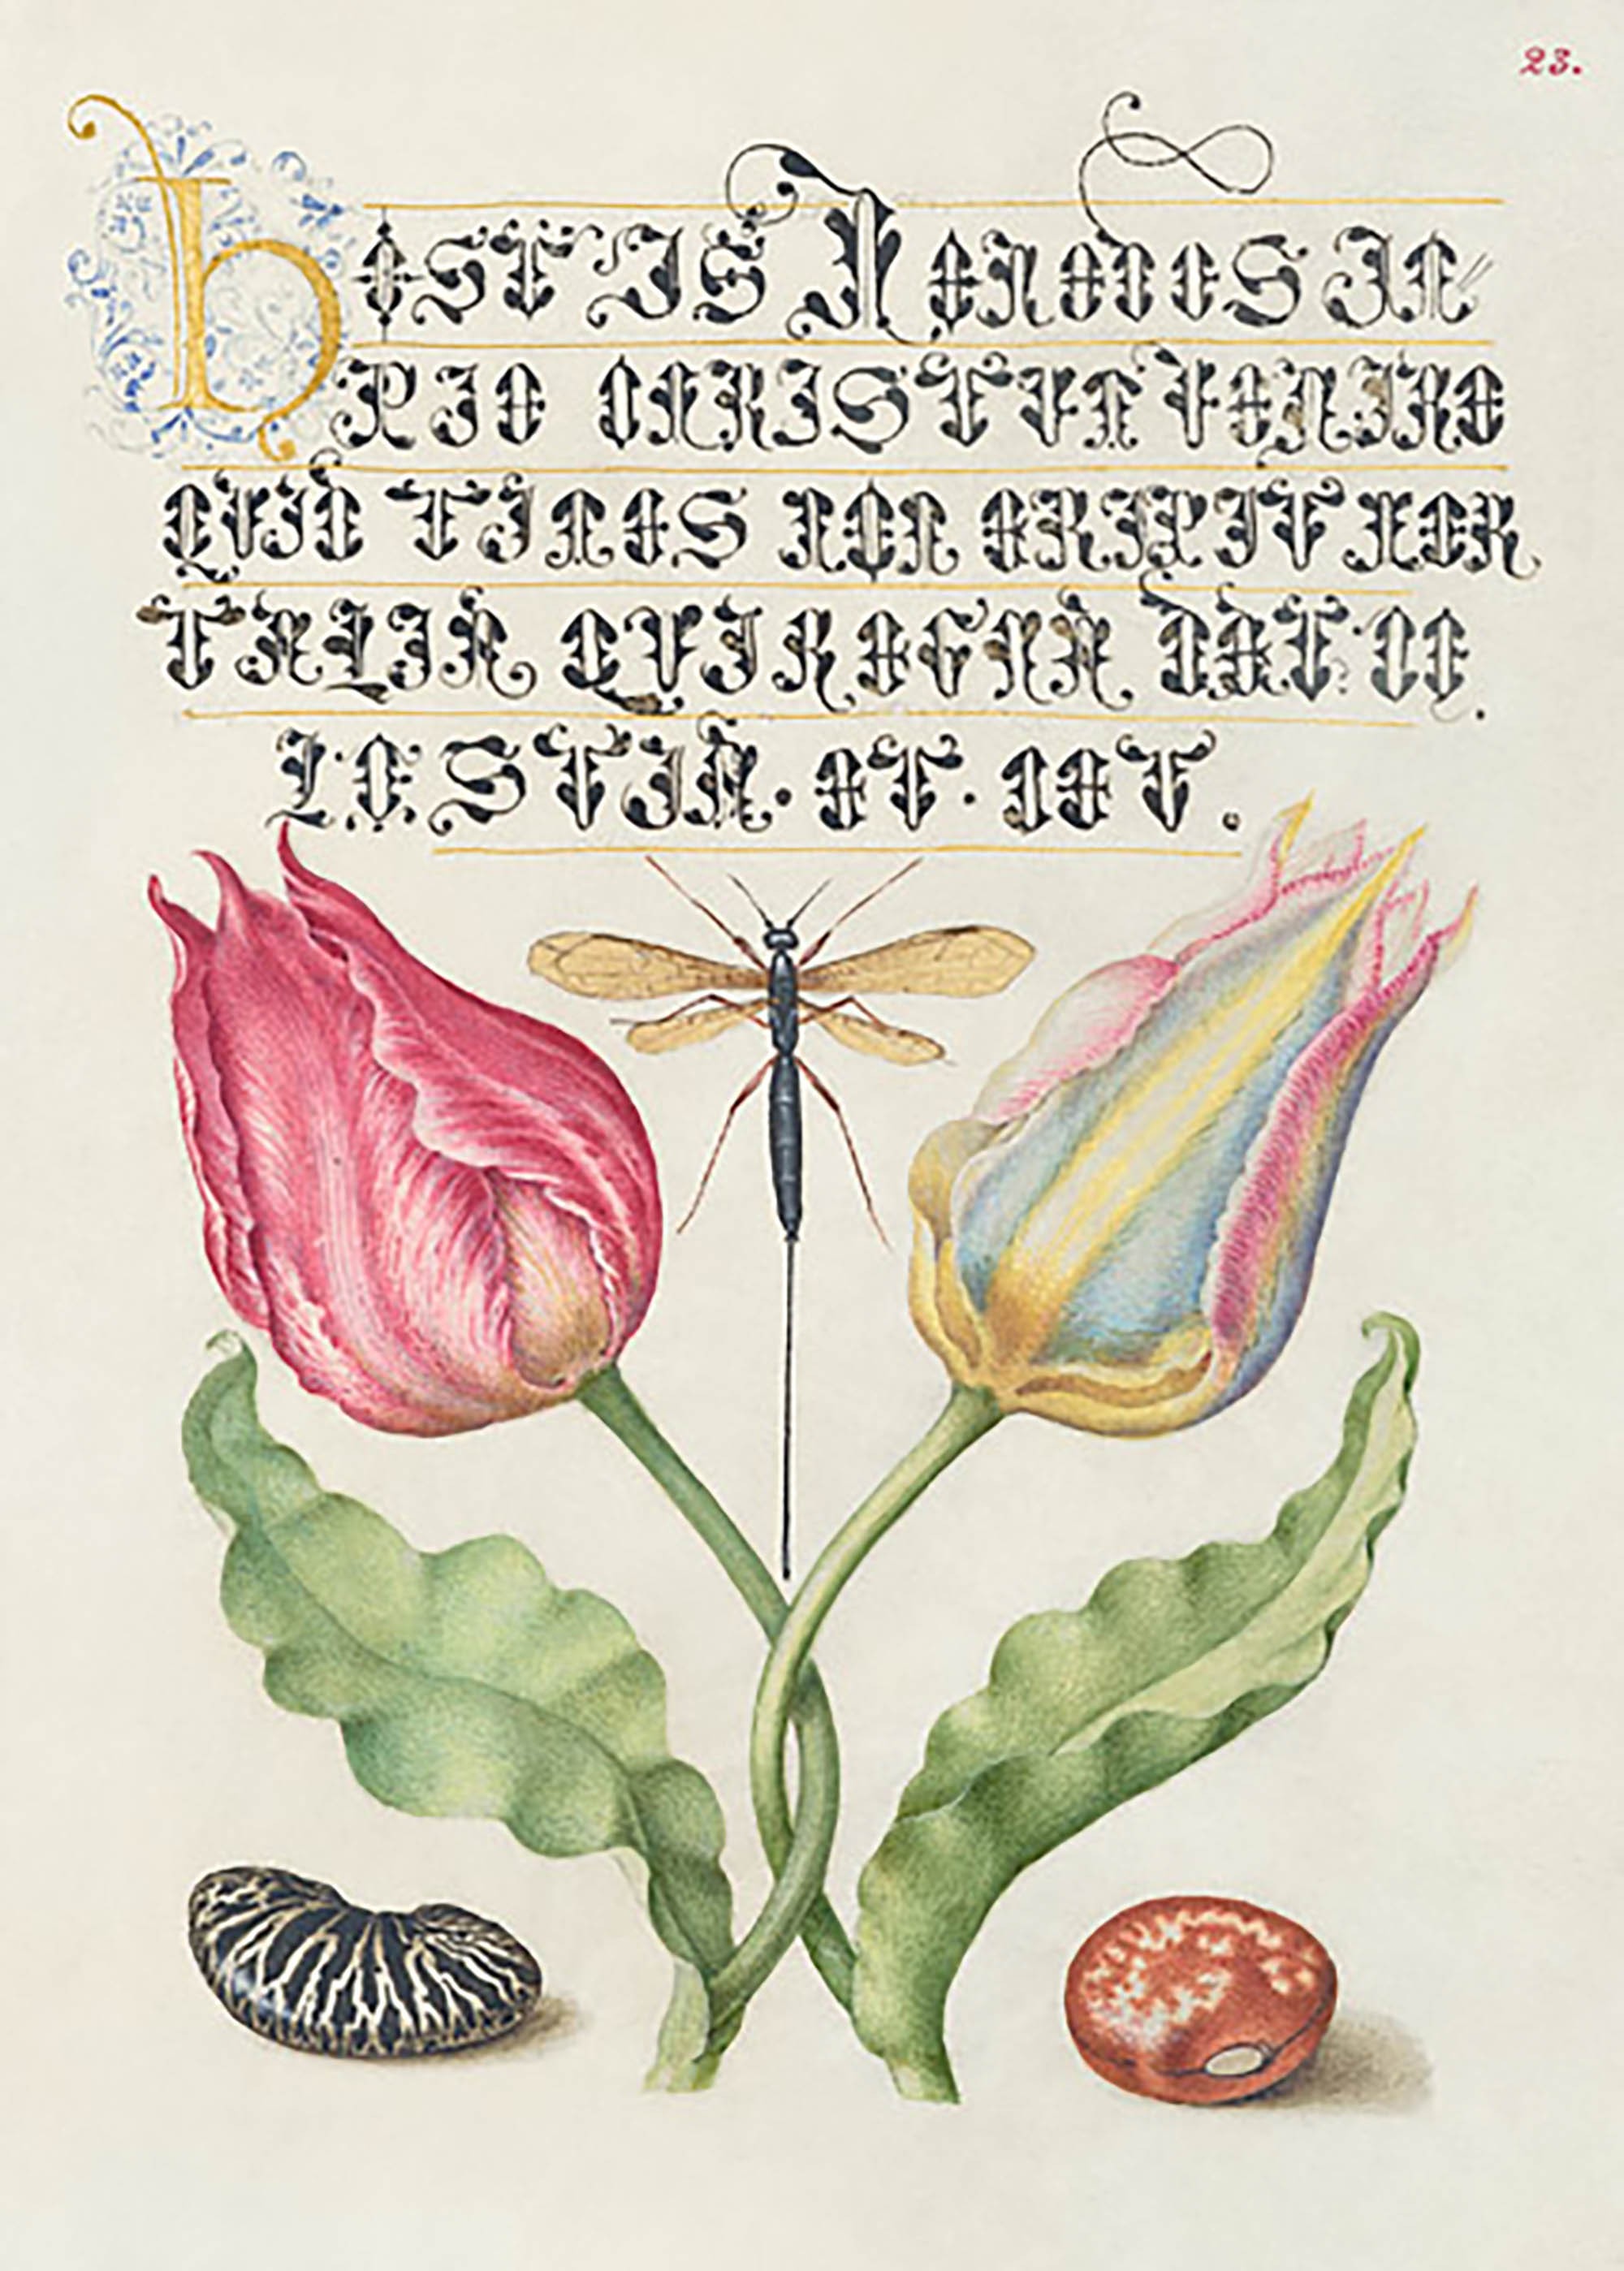 23.
hOSTIS HERODES IM
PIE CHRISTVM VENIRE
QVID TIMES NON ERIPIT MOR
TALIA QVI REGNA DAT CE.
LESTIA. ET. CET.